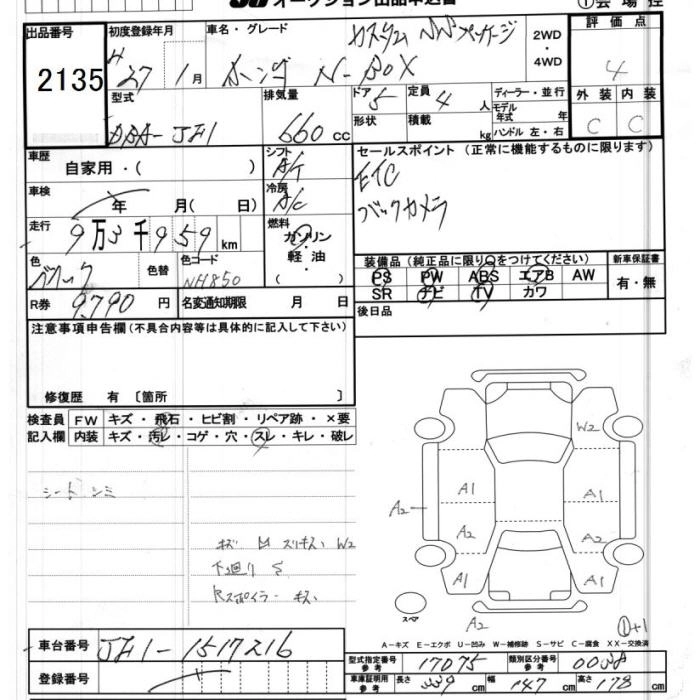 オークション出品申込書
①会場控
出品番号
2135
初度登録年月
ハ 27 年 1月
車名・グレード
カスタム SSパッケージ
ホンダ N-BOX
2WD
・
4WD
評価点
4
型式
DBA-JF1
排気量
660 cc
ドア
5
定員
4 人
形状
積載
kg
ディーラー・並行
モデル年式 年
ハンドル 左・右
外装 内装
C C
車歴
自家用・( )
シフト
A/T
セールスポイント (正常に機能するものに限ります)
ETC
バックカメラ
車検
年 月( 日)
冷房
A/C
走行
9万3千959km
燃料
ガソリン
・
軽油
・
( )
色
ブラック
色替
色コード
NH850
装備品(純正品に限り○をつけてください)
PS PW ABS エアB AW
SR ナビ TV カワ
新車保証書
有・無
R券
9,790円
名変通知期限 月 日
後日品
注意事項申告欄(不具合内容等は具体的に記入して下さい)
修復歴 有 〔箇所 〕
検査員
記入欄
FW キズ・飛石・ヒビ割・リペア跡・×要
内装 キズ・汚レ・コゲ・穴・スレ・キレ・破レ
シート シミ
下廻り S
Rスポイラー キズ
W2
A1
A1
A2
A2
A2
A2
A1
A1
スペア
A2
①+1
A-キズ E-エクボ U-凹み W-補修跡 S-サビ C-腐食 XX-交換済
車台番号
JF1-1517216
登録番号
型式指定番号
参考
17075
類別区分番号
参考
車庫証明用
参考
長さ
339cm
幅
147cm
高さ
178cm